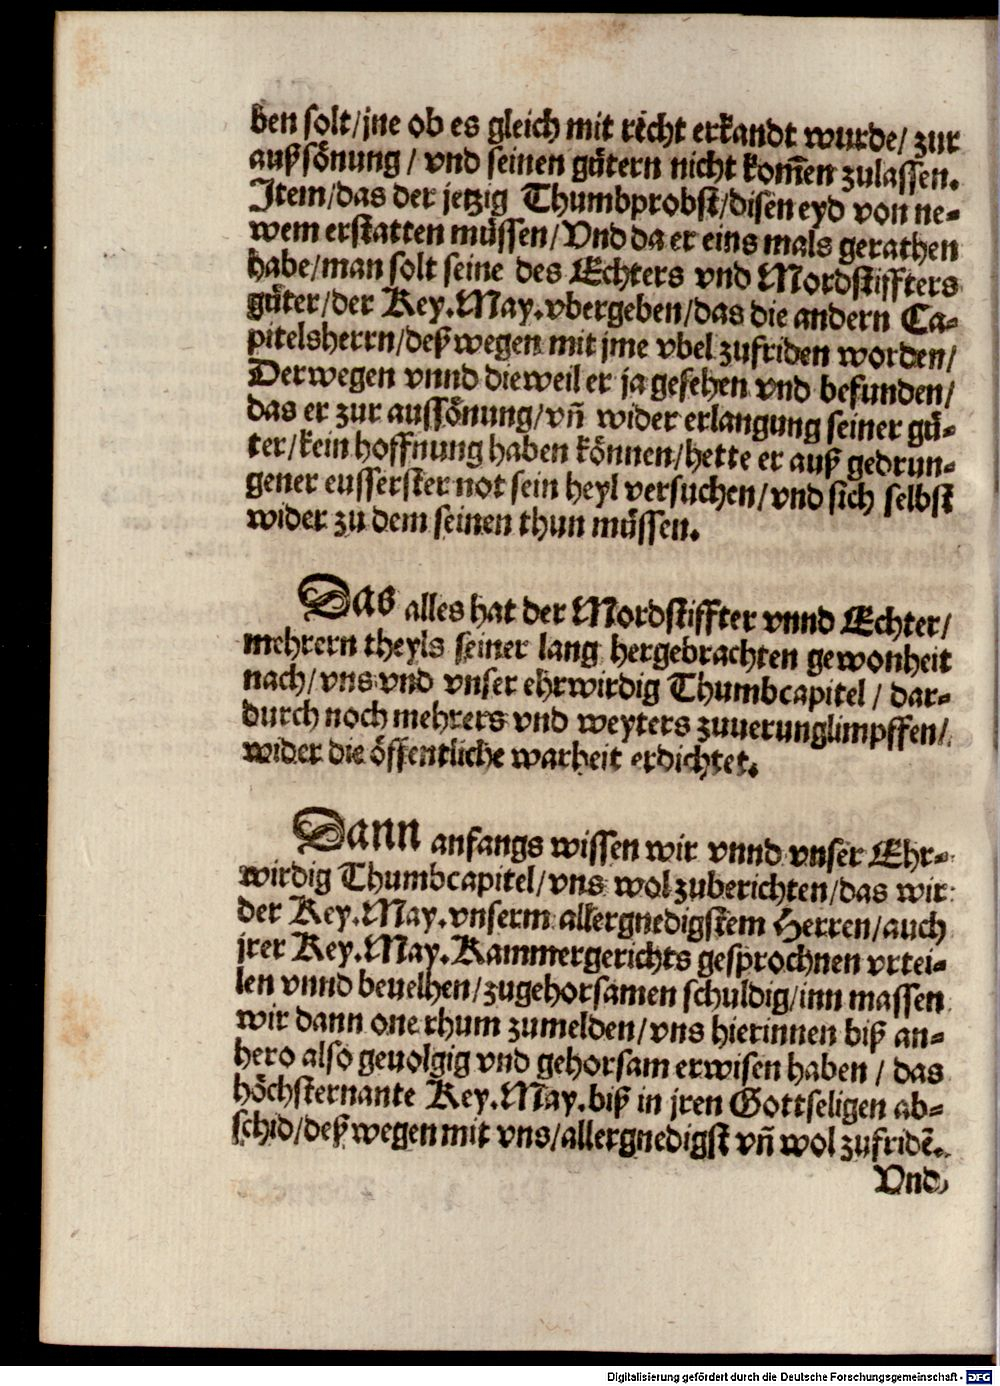 ben solt/jne ob es gleich mit recht erkandt wurde/ zur
außsönung / vnd seinen gütern nicht kom̄en zulassen.
Item/das der jetzig Thumbprobst/disen eyd von ne-
wem erstatten müssen/Vnd da er eins mals gerathen
habe/man solt seine des Echters vnd Mordstiffters
güter/der Key.May.vbergeben/das die andern Ca-
pitelsherrn/deß wegen mit jme vbel zufriden worden/
Derwegen vnnd dieweil er ja gesehen vnd befunden/
das er zur aussönung/vn̄ wider erlangung seiner gü-
ter/kein hoffnung haben können/hette er auß gedrun-
gener eusserster not sein heyl versuchen/vnd sich selbst
wider zu dem seinen thun müssen.
Das alles hat der Mordstiffter vnnd Echter/
mehrern theyls seiner lang hergebrachten gewonheit
nach/vns vnd vnser ehrwirdig Thumbcapitel / dar-
durch noch mehrers vnd weyters zuuerunglimpffen/
wider die öffentliche warheit erdichtet.
Dann anfangs wissen wir vnnd vnser Ehr-
wirdig Thumbcapitel/vns wol zuberichten/das wir
der Key.May.vnserm allergnedigstem Herren/auch
jrer Key.May.Kammergerichts gesprochnen vrtei-
len vnnd beuelhen/zugehorsamen schuldig/inn massen
wir dann one rhum zumelden/vns hierinnen biß an-
hero also geuolgig vnd gehorsam erwisen haben / das
höchsternante Key.May.biß in jren Gottseligen ab-
schid/deß wegen mit vns/allergnedigst vn̄ wol zufridē.
Vnd
Digitalisierung gefördert durch die Deutsche Forschungsgemeinschaft - DFG